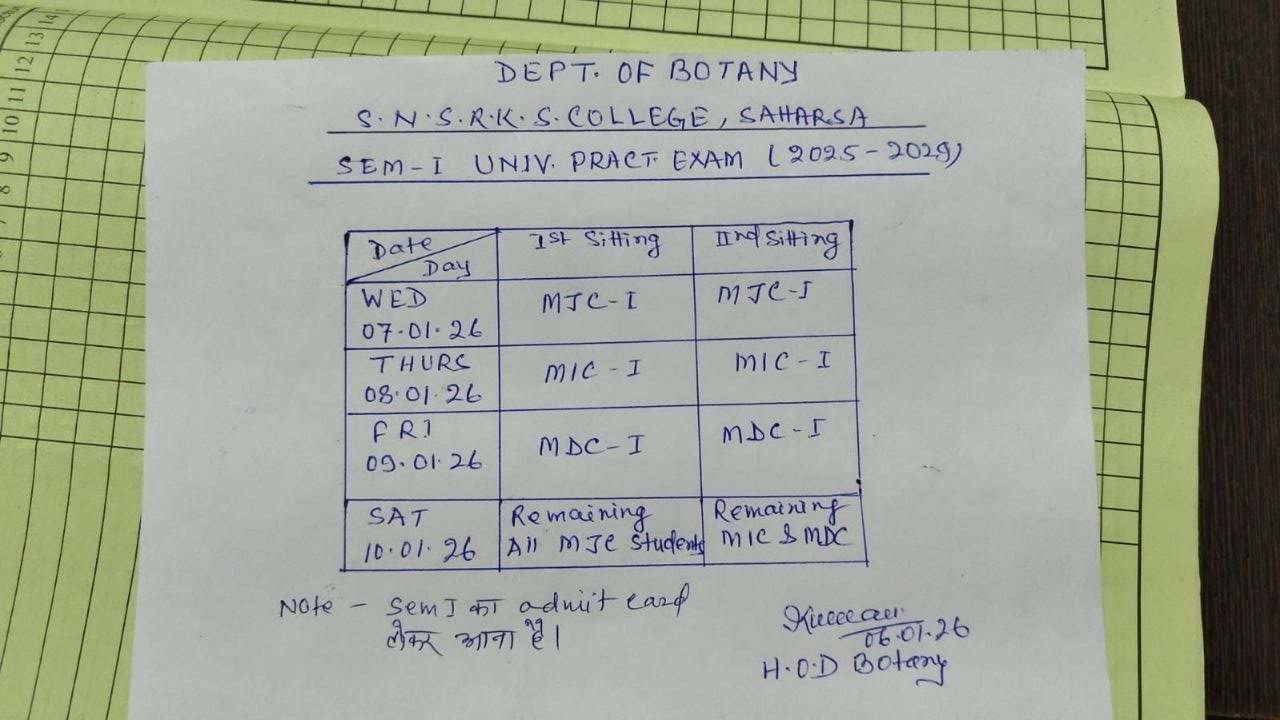 DEPT. OF BOTANY
S.N.S.R.K.S. COLLEGE, SAHARSA
SEM-I UNIV. PRACT. EXAM (2025-2029)
Date Day 1st Sitting IInd Sitting
WED
07.01.26 MJC-I MJC-I
THURS
08.01.26 MIC-I MIC-I
FRI
09.01.26 MDC-I MDC-I
SAT Remaining Remaining
10.01.26 All MJC students MIC & MDC
Note - Sem I का admit card
लेकर आना है।
06.01.26
H.O.D Botany
9 10 11 12 13 14